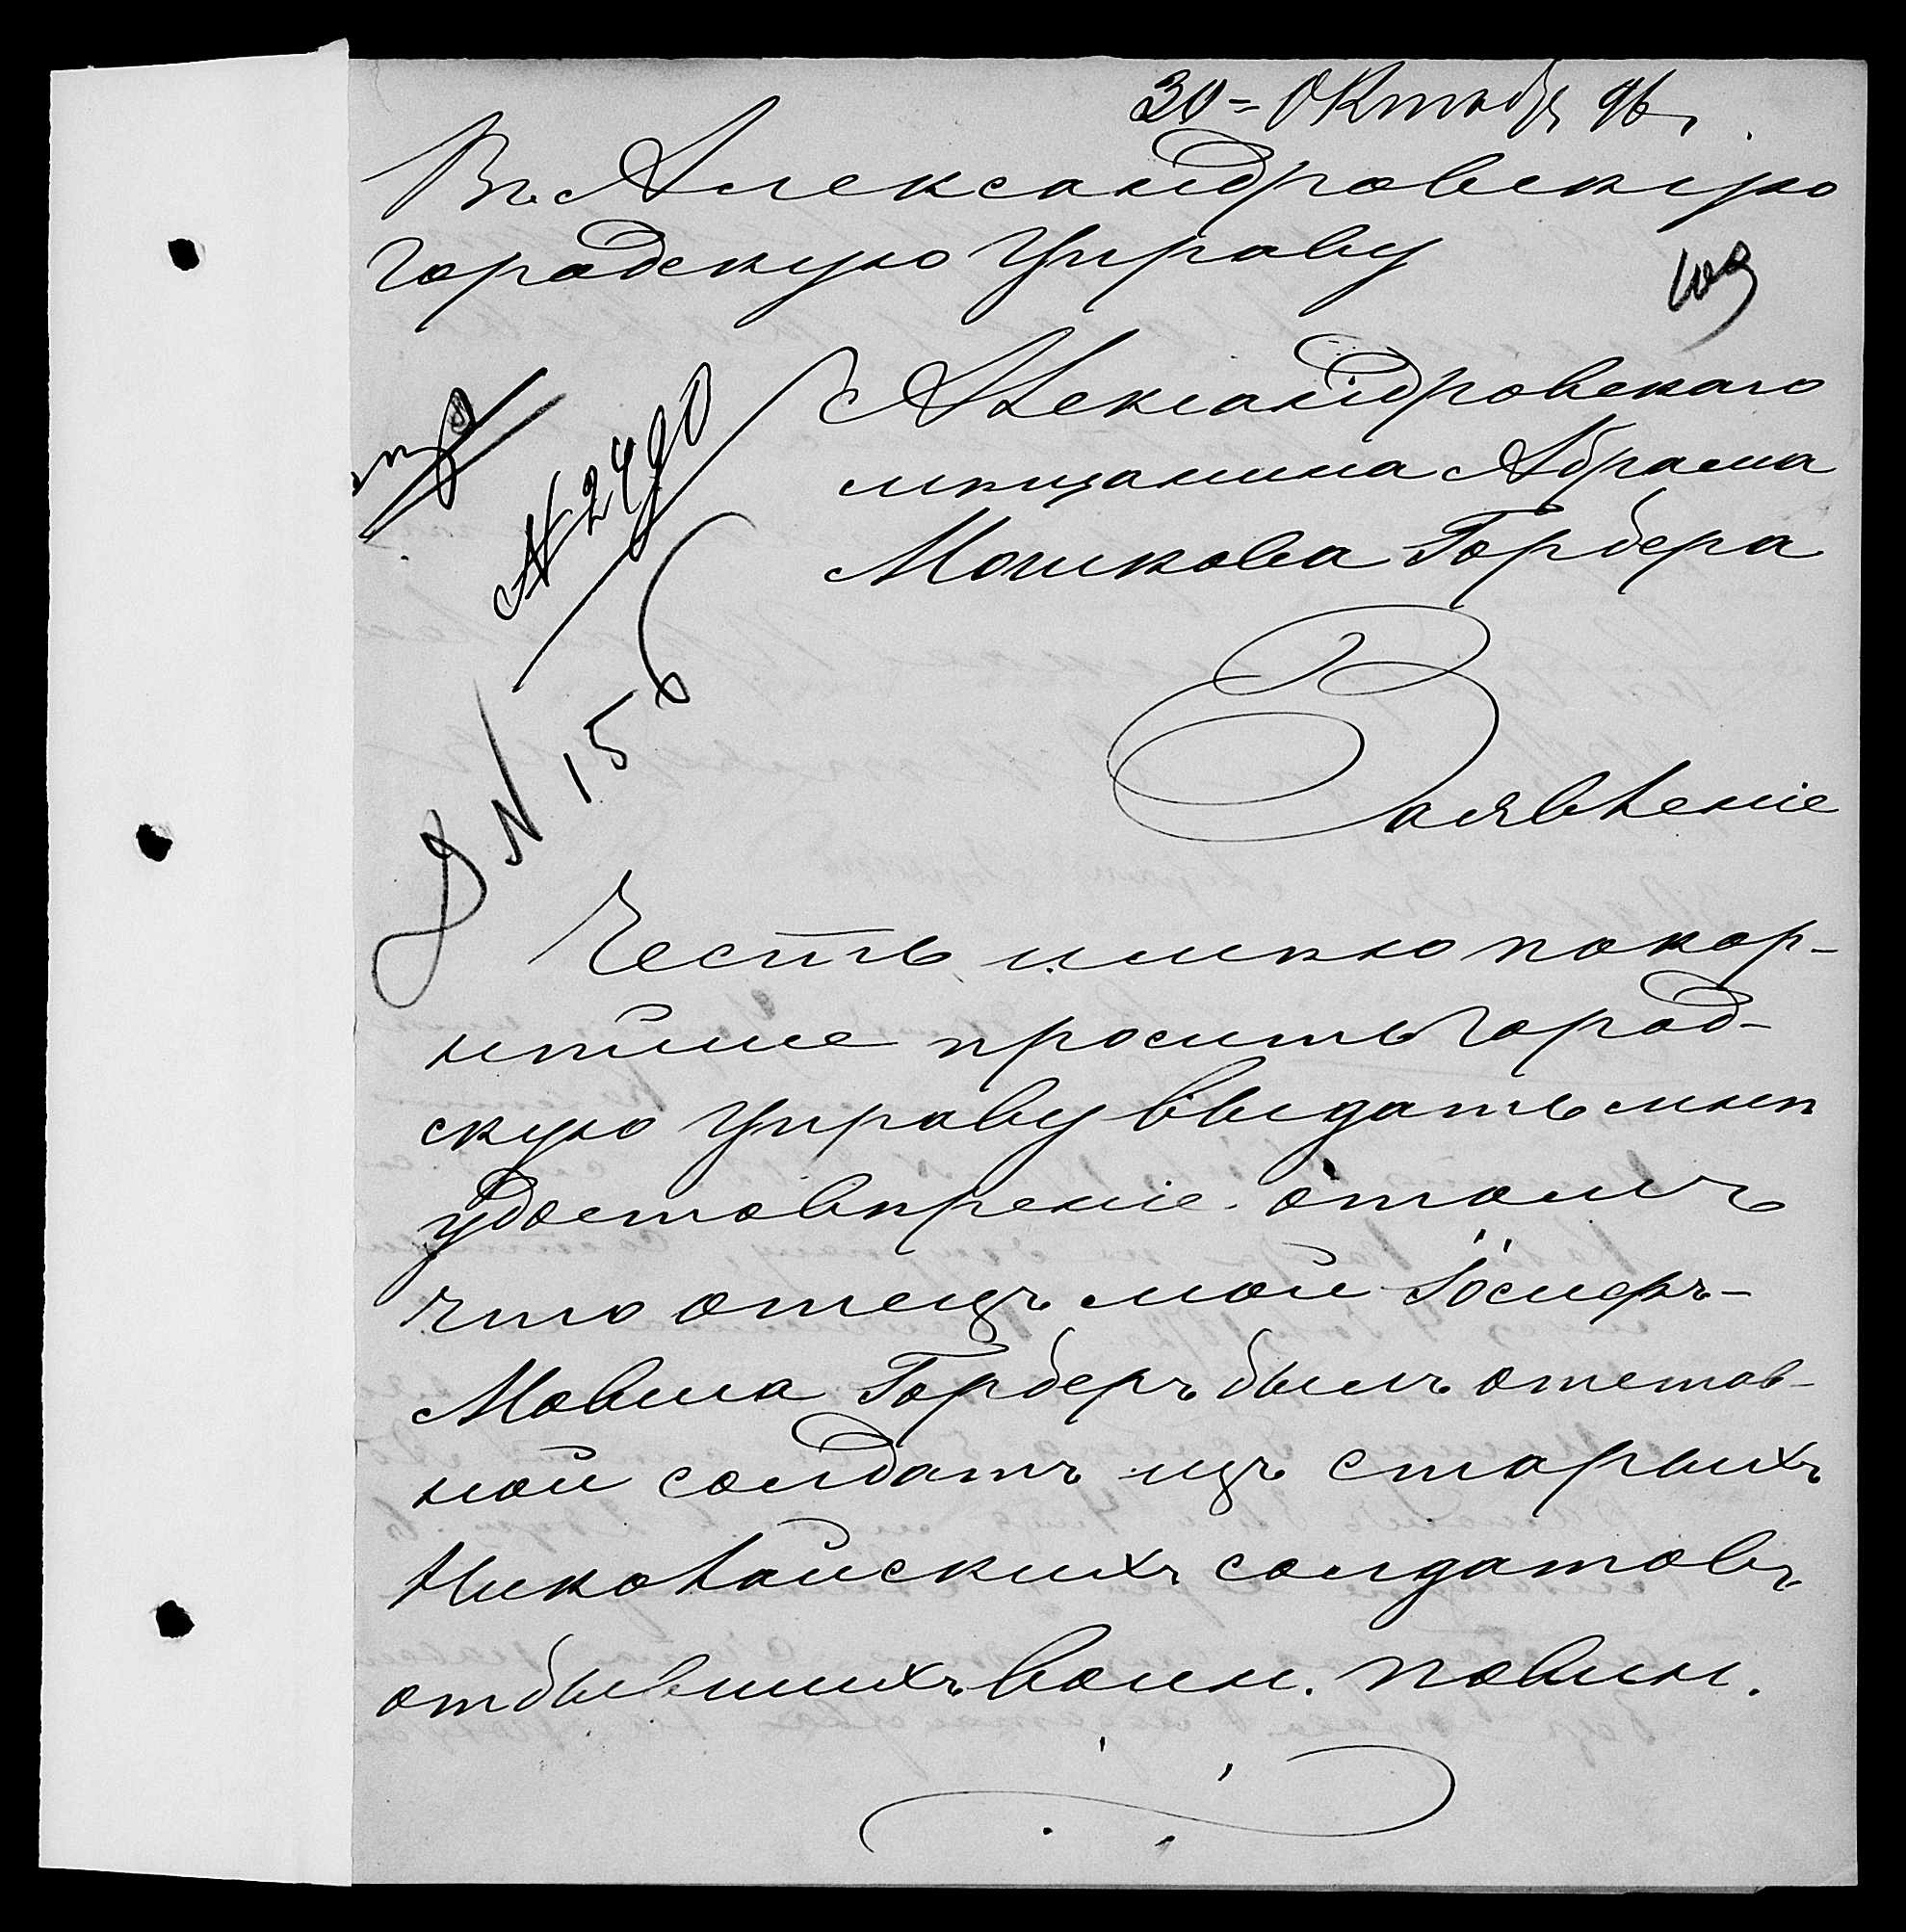 30 = Октября 96 г.
Въ Александровскую
Городскую Управу
Александровскаго
мѣщанина Абрама
Мошкова Гербера
№ 2490
Д N 15
Заявленіе
Честь имѣю покор-
нѣйше просить Город-
скую Управу выдать мнѣ
удостовѣреніе. отомъ
что отецъ мой Іосиеръ-
Мовша Герберъ былъ отстав-
ной солдатъ изъ старыхъ
Николайскихъ солдатовъ
отбывшихъ воин. повин.